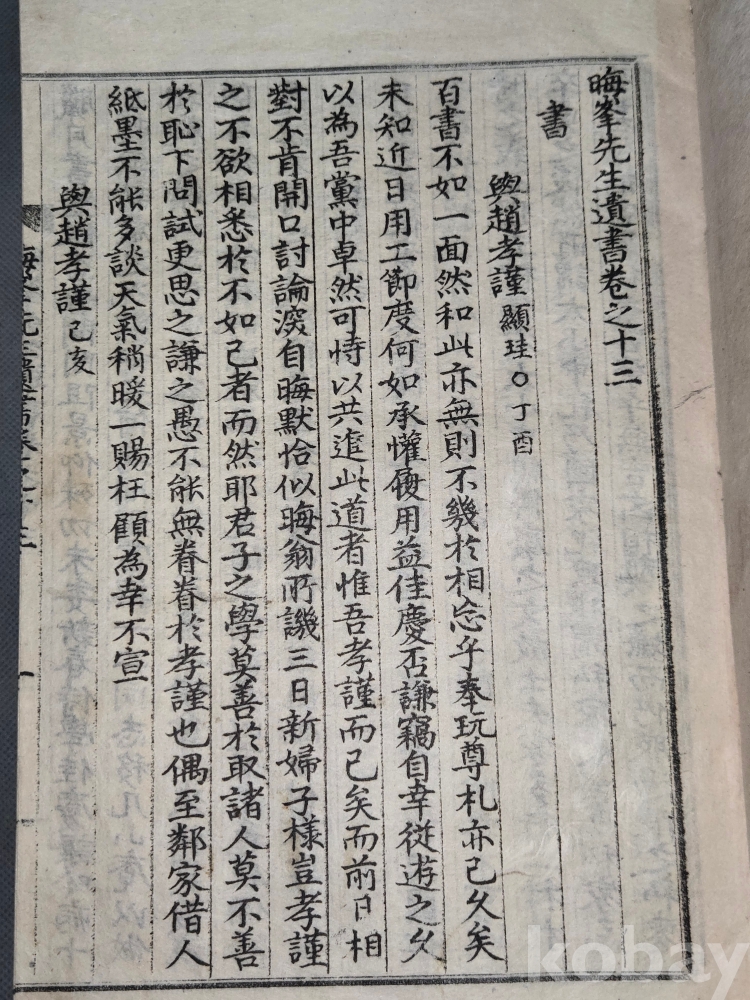 晦峯先生遺書卷之十三
書
與趙孝謹 顯珪○丁酉
百書不如一面然和此亦無則不幾於相忘乎奉玩尊札亦已久矣
未知近日用工節度何如承懽餘用益佳慶否謙竊自幸從遊之久
以為吾黨中卓然可恃以共進此道者惟吾孝謹而已矣而前日相
對不肯開口討論深自晦默恰似晦翁所譏三日新婦子樣豈孝謹
之不欲相悉於不如己者而然耶君子之學莫善於取諸人莫不善
於恥下問試更思之謙之愚不能無眷眷於孝謹也偶至鄰家借人
紙墨不能多談天氣稍暖一賜枉顧為幸不宣
與趙孝謹 己亥
晦峯先生遺書卷之十三
一
kobay